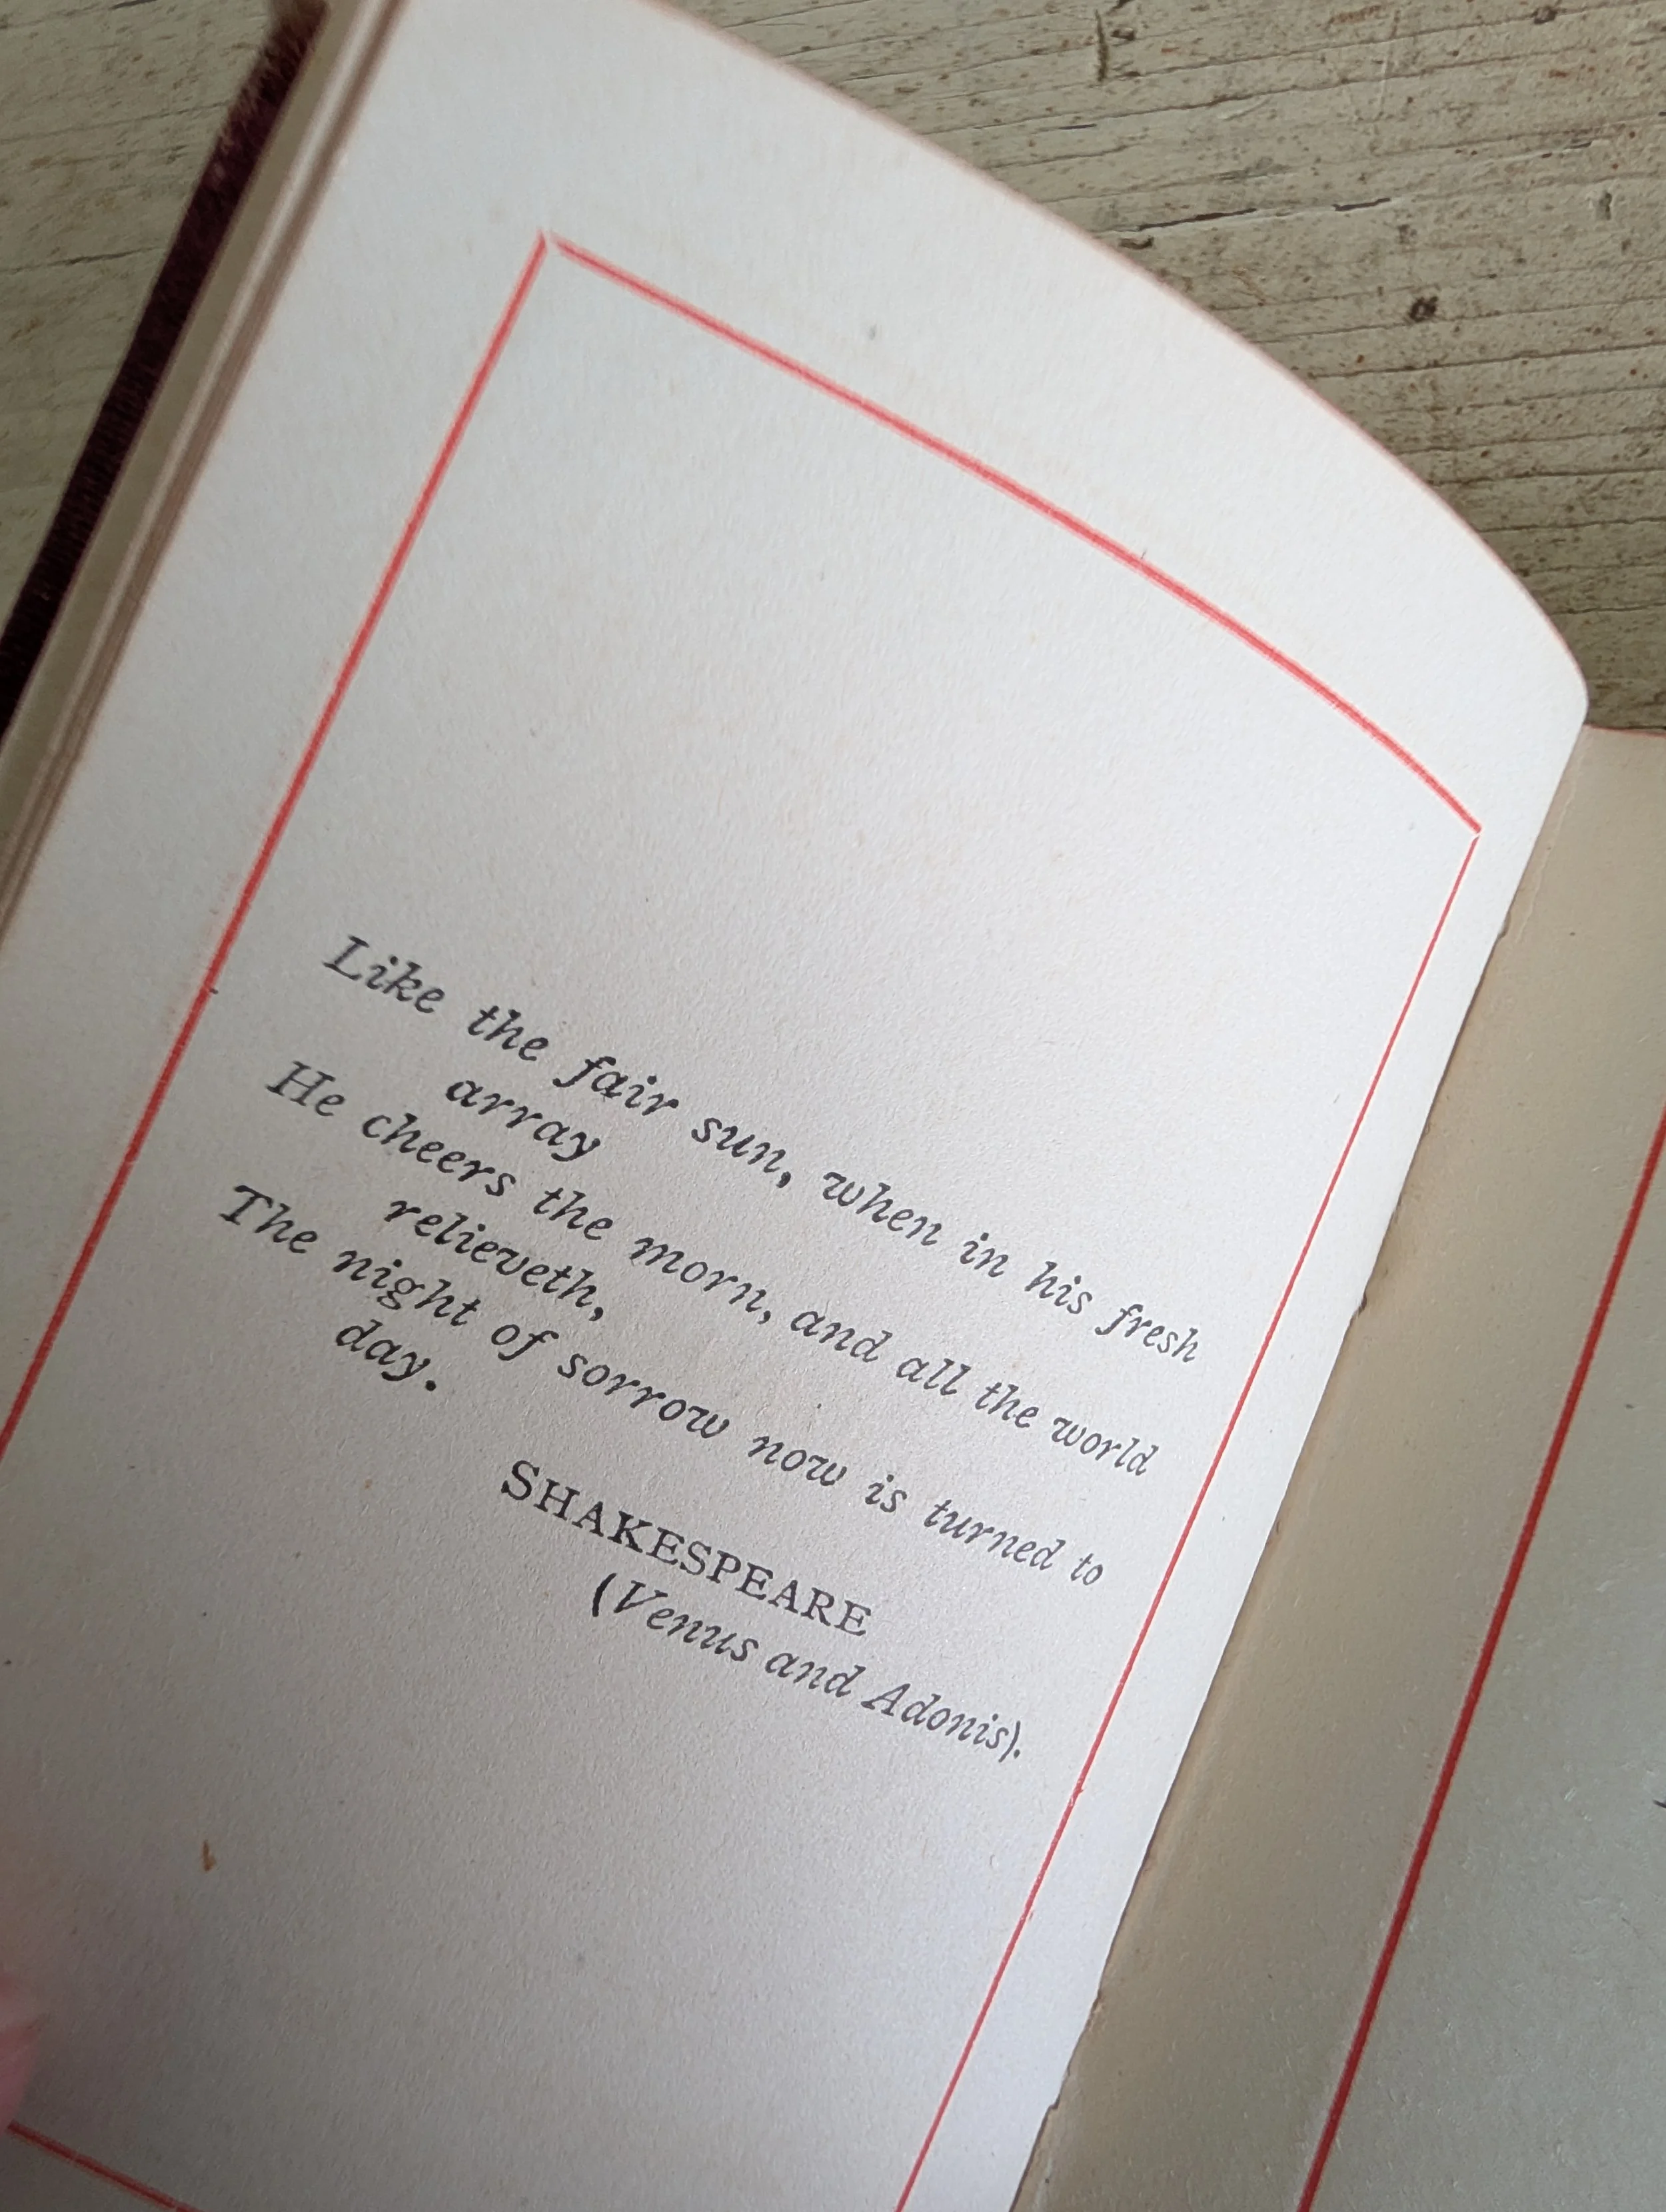 Like the fair sun, when in his fresh
array
He cheers the morn, and all the world
relieveth,
The night of sorrow now is turned to
day.
SHAKESPEARE
(Venus and Adonis).